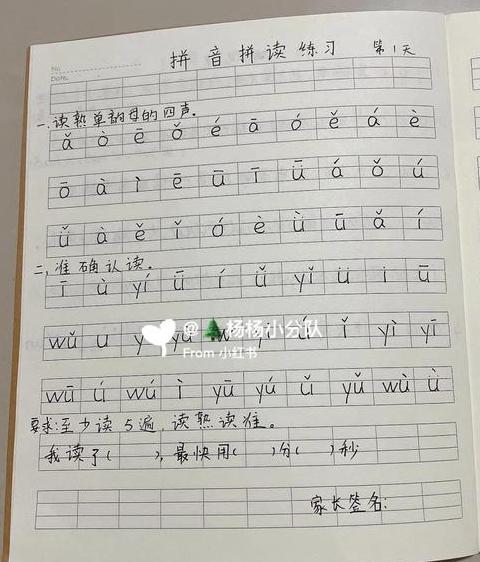 No.
Date.
拼音拼读练习 第1天
一、读熟单韵母的四声。
ǎ ò ē ǒ é ā ó ě á è
ō à ì ē ū ī ǖ á ǒ ú
ǚ à ě ǐ ó è ǜ ū ǎ í
二、准确认读。
ī ù yí ǖ í ǔ yǐ ü i ǖ
wǔ u y yu w ǐ yì yī
@🌲杨杨小分队
From 小红书
wū ú wú ì yū yú ǔ yǔ wù ǜ
要求:至少读5遍,读熟读准。
我读了( ),最快用( )分( )秒
家长签名: